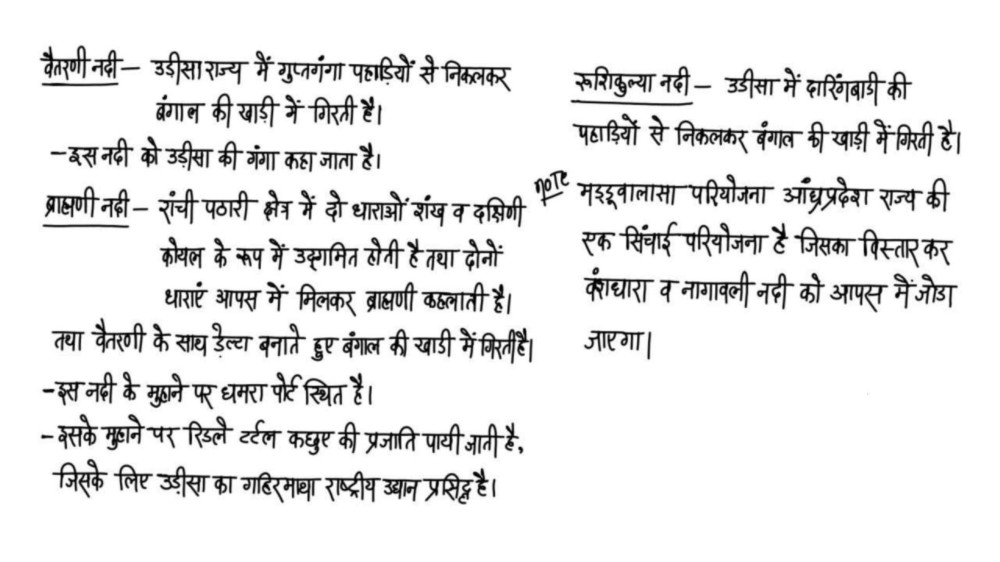 वैतरणी नदी – उडीसा राज्य में गुप्तगंगा पहाड़ियों से निकलकर
बंगाल की खाडी में गिरती है।
– इस नदी को उड़ीसा की गंगा कहा जाता है।
ब्राह्मणी नदी – रांची पठारी क्षेत्र में दो धाराओं शंख व दक्षिणी
कोयल के रूप में उद्गमित होती है तथा दोनों
धाराएं आपस में मिलकर ब्राह्मणी कहलाती है।
तथा वैतरणी के साथ डेल्टा बनाते हुए बंगाल की खाडी में गिरती है।
– इस नदी के मुहाने पर धमरा पोर्ट स्थित है।
– इसके मुहाने पर रिडले टर्टल कछुए की प्रजाति पायी जाती है,
जिसके लिए उड़ीसा का गहिरमाथा राष्ट्रीय उद्यान प्रसिद्ध है।
रूशिकुल्या नदी – उडीसा में दारिंगबाडी की
पहाड़ियों से निकलकर बंगाल की खाडी में गिरती है।
NOTE मड्डूवालासा परियोजना आंध्रप्रदेश राज्य की
एक सिंचाई परियोजना है जिसका विस्तार कर
वंशधारा व नागावली नदी को आपस में जोडा
जाएगा।